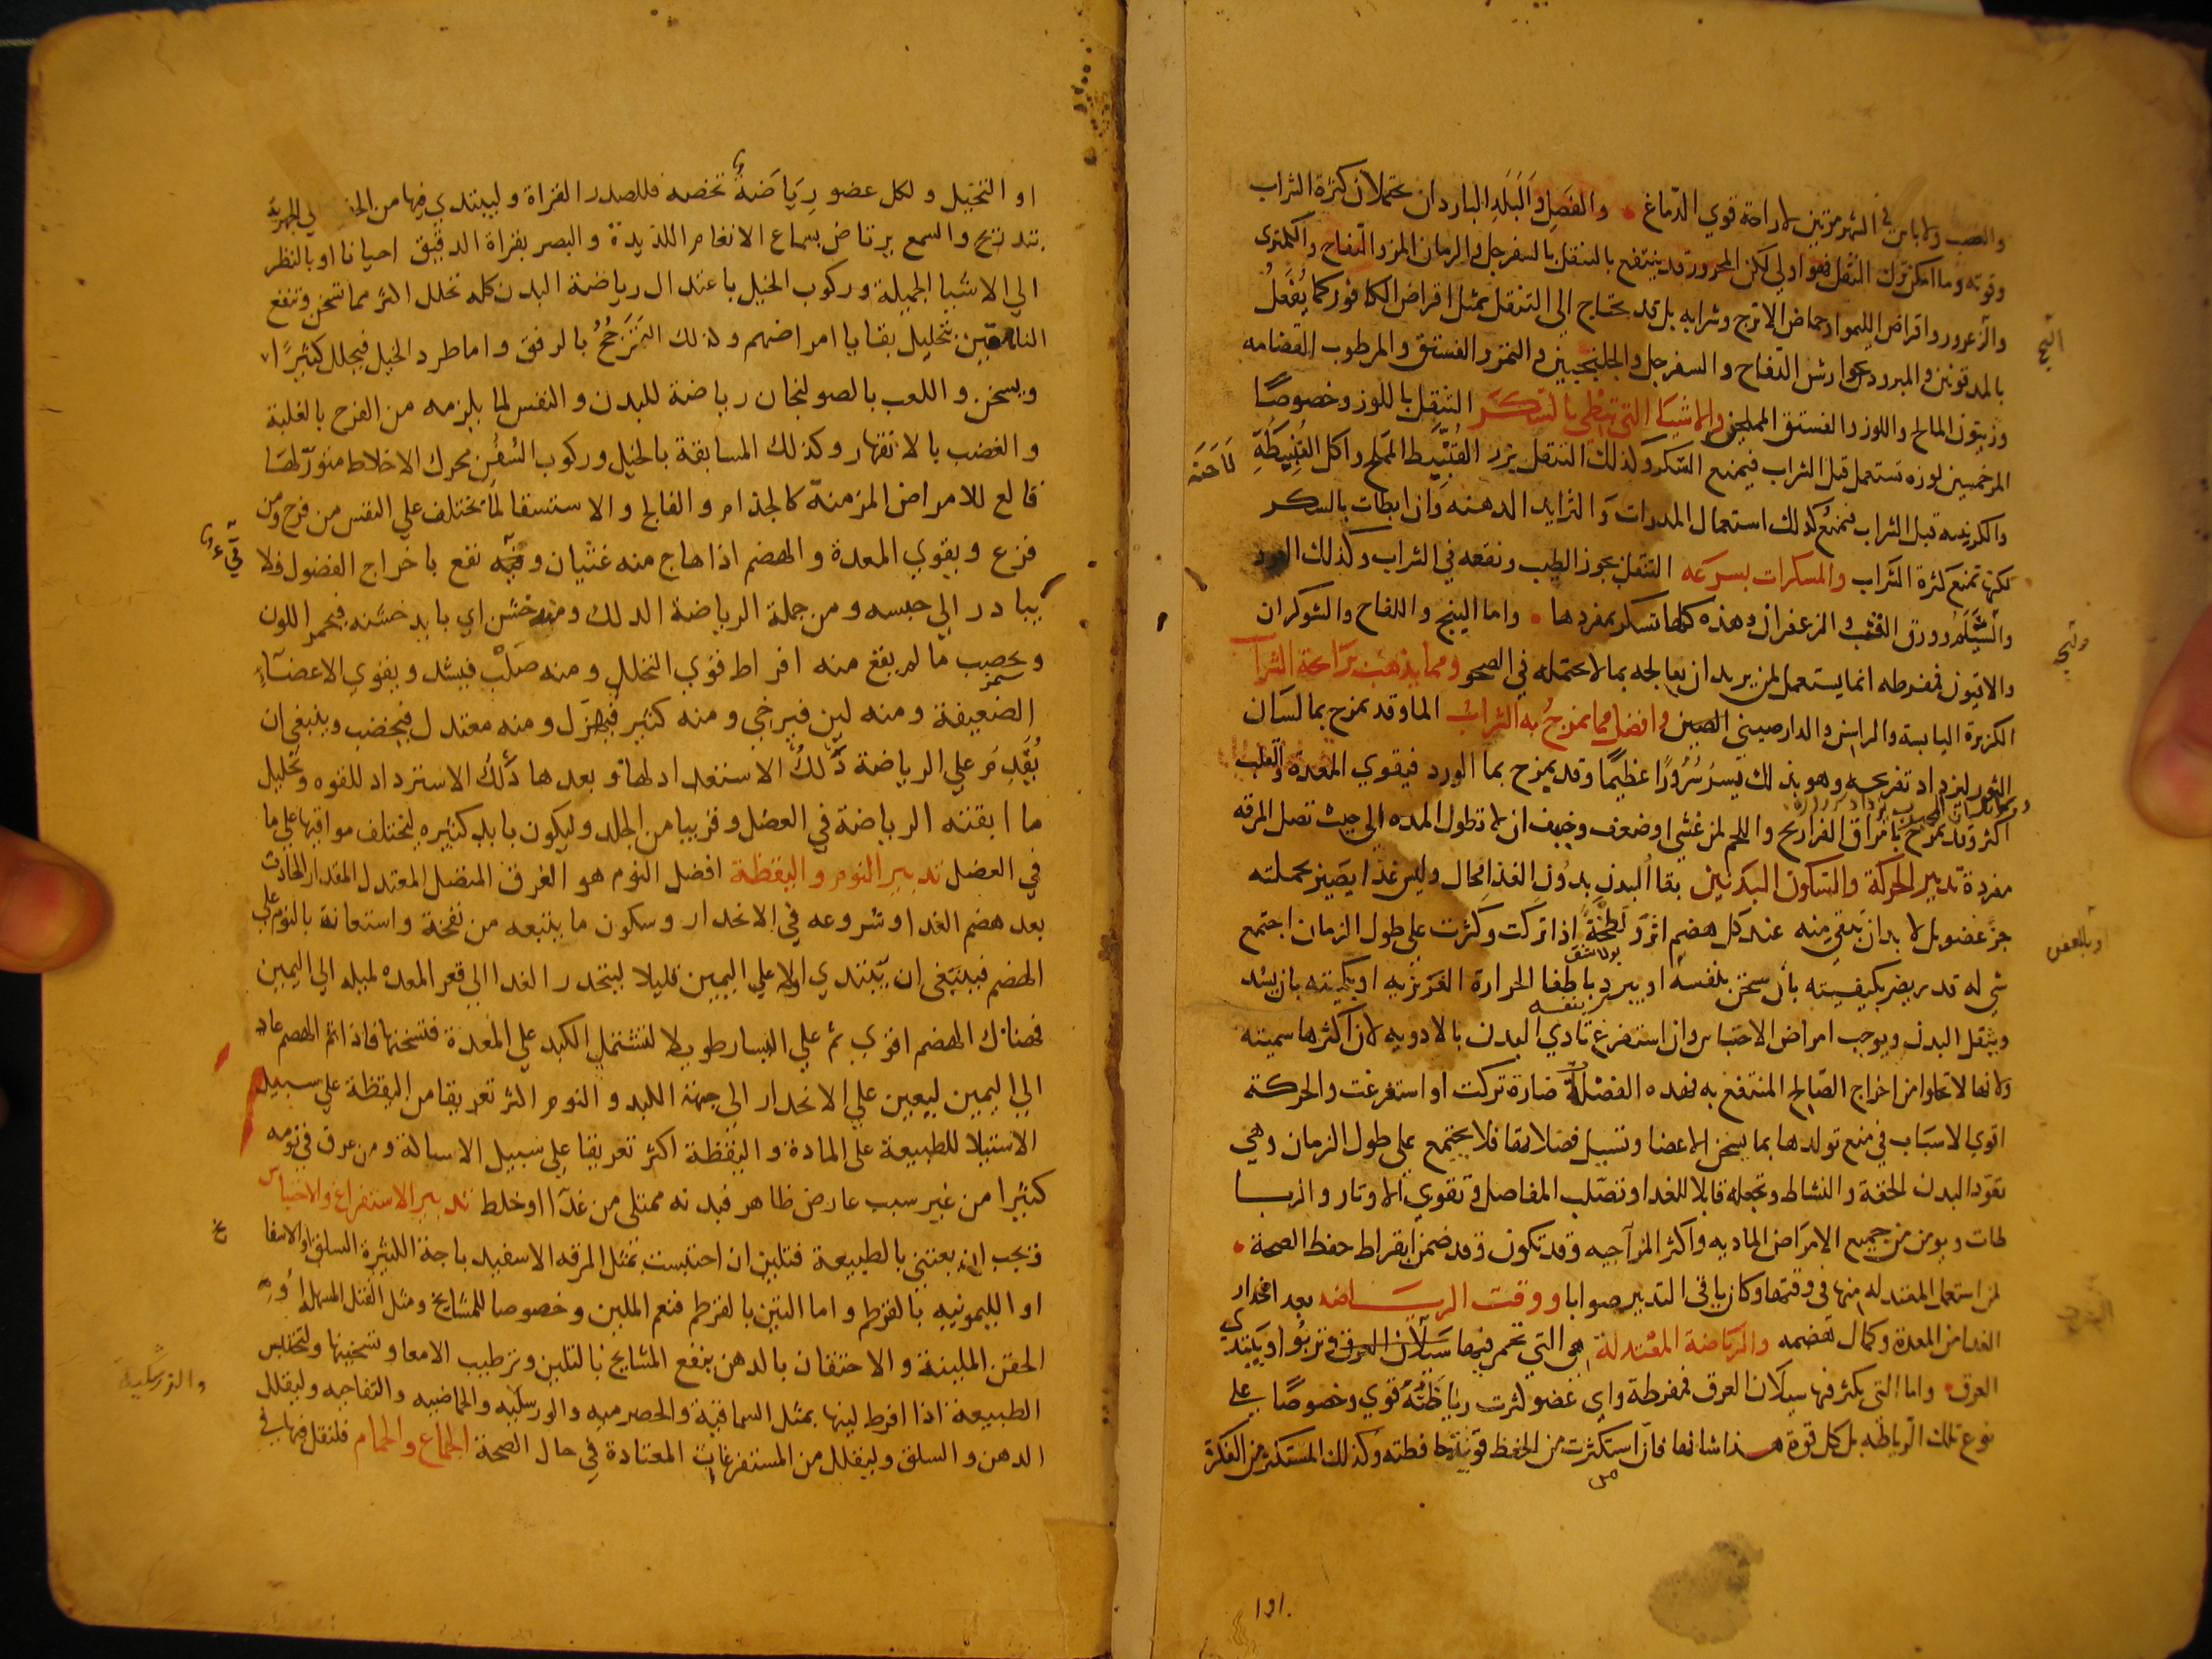 والعصب ولا باس في الشهر مرتين لاراحة قوي الدماغ والفصل والبلد البارد ان يحتملان كثرة الشراب
وقوته وما امكن ترك النقل فهو اولي لكن المحرور قد ينتفع بالتنقل بالسفرجل والرمان المز والتفاح والكمثري
والزعرور واقراص الليمو او حماض الاترج وشرابه بل قد يحتاج الي التنقل بمثل اقراص الكافور كما يفعل
بالمدقوقين والمبرود بجوارش التفاح والسفرجل والجلنجبين والتمر والفستق والمرطوب القضامه
وزيتون المالح واللوز والفستق المملحين والاشيا التي تبطي بالسكر التنقل باللوز وخصوصًا
المر خمسين لوزه تستعمل قبل الشراب فيمنع السكر وكذلك التنقل بزر القنبيط المملح واكل القنبيطة
والكرنبيه قبل الشراب فيمنع كذلك استعمال المدرات والثرايد الدهنه وان ابطات بالسكر
لكنها تمنع كثرة الشراب والمسكرات بسرعه التنقل بجوز الطيب ونقعه في الشراب وكذلك العود
والشيلم وورق القنب والزعفران وهذه كلها تسكر بمفردها واما البنج واللفاح والشوكران
والافيون فمفرطه انما يستعمل لمن يريد ان يعالجه بما لا يحتمله في الصحو ومما يذهب برائحة الشراب
الكزبرة اليابسة والراسن والدارصيني الصين وافضل ما يمزج به الشراب الما وقد يمزج بما لسان
الثور ليزداد تفريحه وهو بذلك يسر سرورًا عظيمًا وقد يمزج بما الورد فيقوي المعدة والقلب
اكثر وقد يمزج بامراق الفراريج واللحم لمن غشي او ضعف وخيف ان لا تطول المده الي حيث تصل المرقه
مفردة تدبير الحركة والسكون البدنيين بقا البدن بدون الغذا محال وليس غذا يصير بجملته
جز عضو بل لا بد ان يبقي منه عند كل هضم اثر ولطخة اذا تركت وكثرت علي طول الزمان اجتمع
شي له قد ر يضر بكيفيته بان يسخن بنفسه او يبرد باطفا الحرارة الغريزيه او بكميته بان يسد
ويثقل البدن ويوجب امراض الاحتباس وان استفرغ تاذي البدن بالادويه لان اكثرها سميته
ولانها لا تخلوا من اخراج الصالح المنتفع به فهده الفضلة ضارة تركت او استفرغت والحركة
اقوي الاسباب في منع تولدها بما يسخن الاعضا وتسيل فضلاتها فلا يجتمع علي طول الزمان وهي
تعود البدن الخفة والنشاط وتجعله قابلا للغدا وتصلب المفاصل وتقوي الاوتار والربا
طات ويومن من جميع الامراض الماديه واكثر المزاجيه وقد تكون وقد ضمن ابقراط حفظ الصحة
لمن استعمل المعتدله منها في وقتها وكان باقي التدبير صوابا ووقت الرياضه بعد انحدار
الغدا من المعدة وكمال هضمه والرياضة المعتدلة هي التي تحمر فيها سيلان العرق وتربو او يبتدي
العرق واما التي يكثر فيها سيلان العرق فمفرطة واي عضو كثرت رياظته قوي وخصوصًا علي
نوع تلك الرياظه بل كل قوة هذا شانها فان استكثرت من الحفظ قويت حافظته وكذلك المستكثر من الفكرة
او التخيل ولكل عضو رياضة تخصه فللصدر القراة وليبتدي فيها من
بتدريج والسمع يرتاض بسماع الانغام اللذيذة والبصر بقراة الدقيق احيانا او بالنظر
الي الاشيا الجميلة وركوب الخيل باعتدال رياضة البدن كله تحلل اكثر مما تسخن وتنفع
الناقهين بتحليل بقايا امراضهم ولذلك الترجح بالرفق واما طرد الخيل فيحلل كثيرًا
ويسخن واللعب بالصولجان رياضة للبدن والنفس لما يلزمه من الفرح بالغلبة
والغضب بالانقهار وكذلك المسابقة بالخيل وركوب السفن محرك الاخلاط مثور لها
قالع للامراض المزمنة كالجذام والفالج والاستسقا لما تختلف علي النفس من فرح ومن
فزع ويقوي المعدة والهضم اذا هاج منه غثيان وقي نفع باخراج الفضول فلا
يبادر الي حبسه ومن جملة الرياضة الدلك ومنه خشن اي بايد خشنه فيحمر اللون
ويخصب ما لم يقع منه افراط قوي التحلل ومنه صلب فيشد ويقوي الاعضاء
الضعيفة ومنه لين فيرخي ومنه كثير فيهزل ومنه معتدل فيخصب وينبغي ان
يقدم علي الرياضة دلك الاستعداد لها وبعدها دلك الاسترداد للقوه وتحليل
ما ابقته الرياضة في العضل وقريبا من الجلد وليكون بايد كثيره ليختلف مواقعها علي ما
في العضل تدبير النوم واليقظة افضل النوم هو الغرق المتصل المعتدل المقدار الحادث
بعد هضم الغدا وشروعه في الانحدار وسكون ما يتبعه من نفخة واستعانة بالنوم علي
الهضم فينبغي ان يبتدي اولا علي اليمين قليلا لينحدر الغدا الي قعر المعده لميله الي اليمين
فهناك الهضم اقوي ثم علي اليسار طويلا لتشتمل الكبد علي المعدة فتسخنها فاذا تم الهضم عاد
الي اليمين ليعين علي الانحدار الي جهة الكبد والنوم اكثر تعريقا من اليقظة علي سبيل
الاستيلا للطبيعة علي المادة واليقظة اكثر تعريقا علي سبيل الاسالة ومن عرق في نومه
كثيرا من غير سبب عارض ظاهر فبدنه ممتلي من غذا او خلط تدبير الاستفراغ والاحتباس
ويجب ان يعتني بالطبيعة فتلين ان احتبست بمثل المرقه الاسفيدباجة الكثيرة السلق والاسفا
او الليمونيه بالقرطم واما التين بالقرطم فنعم الملين وخصوصا للمشايخ ومثل الفتل المسهلة
الحقن الملينة والاحتقان بالدهن ينفع المشايخ بالتلين وترطيب الامعا وتسخينها ولتحتبس
الطبيعة اذا افرط لينها بمثل السماقية والحصرميه والزرشكيه والحماضيه والتفاحيه وليقلل
الدهن والسلق وليقلل من المستفرغات المعتادة في حال الصحة الجماع والحمام فلنقل فيها في
والزرشكية